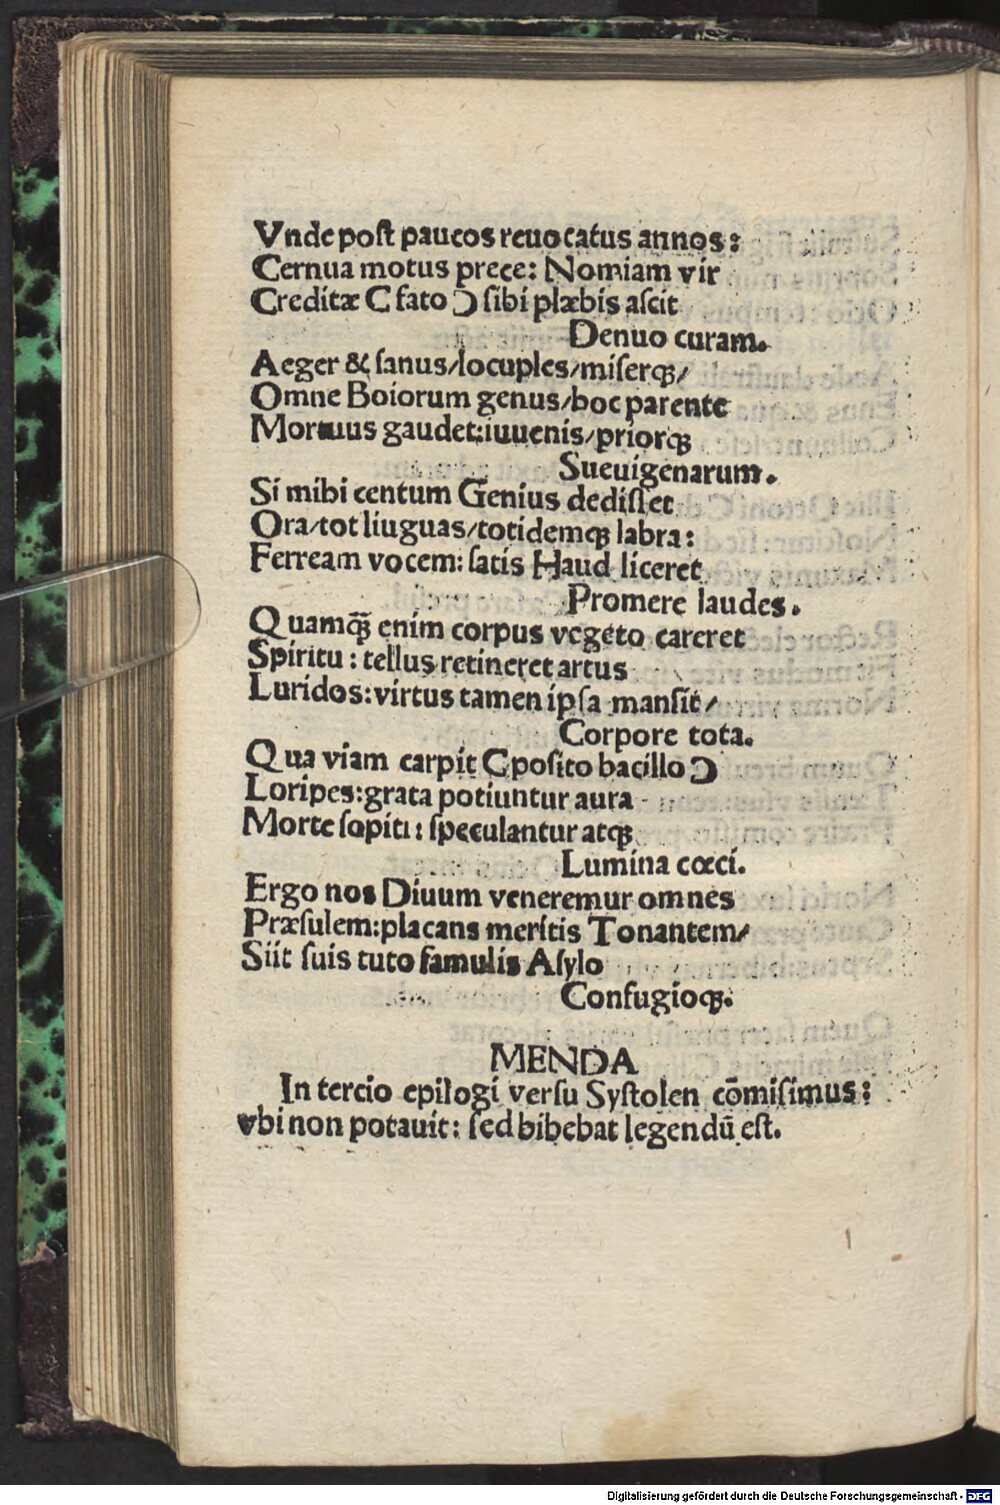 Vnde post paucos reuocatus annos:
Cernua motus prece: Nomiam vir
Creditæ C fato Ɔ sibi plæbis ascit
Denuo curam.
Aeger & sanus/locuples/miserqꝫ/
Omne Boiorum genus/hoc parente
Mortuus gaudet:iuuenis/priorqꝫ
Sueuigenarum.
Si mihi centum Genius dedisset
Ora/tot liuguas/totidemqꝫ labra:
Ferream vocem: satis Haud liceret
Promere laudes.
Quamq̃ꝫ enim corpus vegeto careret
Spiritu: tellus retineret artus
Luridos:virtus tamen ipsa mansit/
Corpore tota.
Qua viam carpit C posito bacillo Ɔ
Loripes:grata potiuntur aura
Morte sopiti: speculantur atqꝫ
Lumina cœci.
Ergo nos Diuum veneremur omnes
Præsulem:placans meritis Tonantem/
Siit suis tuto famulis Asylo
Confugioqꝫ.
MENDA
In tercio epilogi versu Systolen cōmisimus:
vbi non potauit: sed bibebat legendū est.
Digitalisierung gefördert durch die Deutsche Forschungsgemeinschaft - DFG